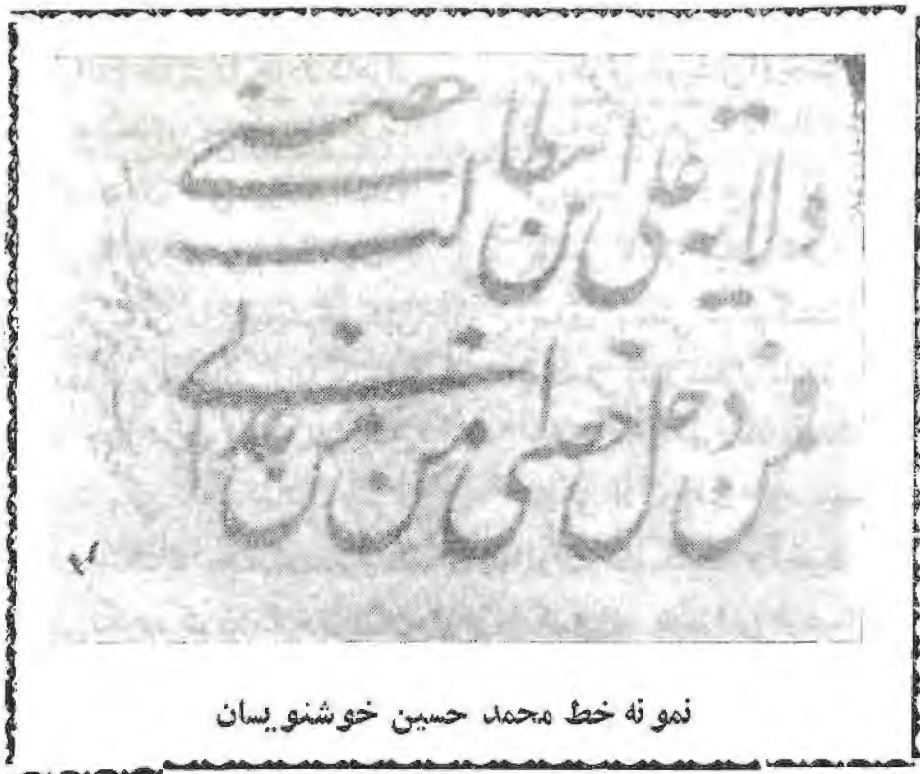 ولایة علی ابن ابیطالب حصنی
فمن دخل حصنی امن من عذابی
نمونه خط محمد حسین خوشنویسان